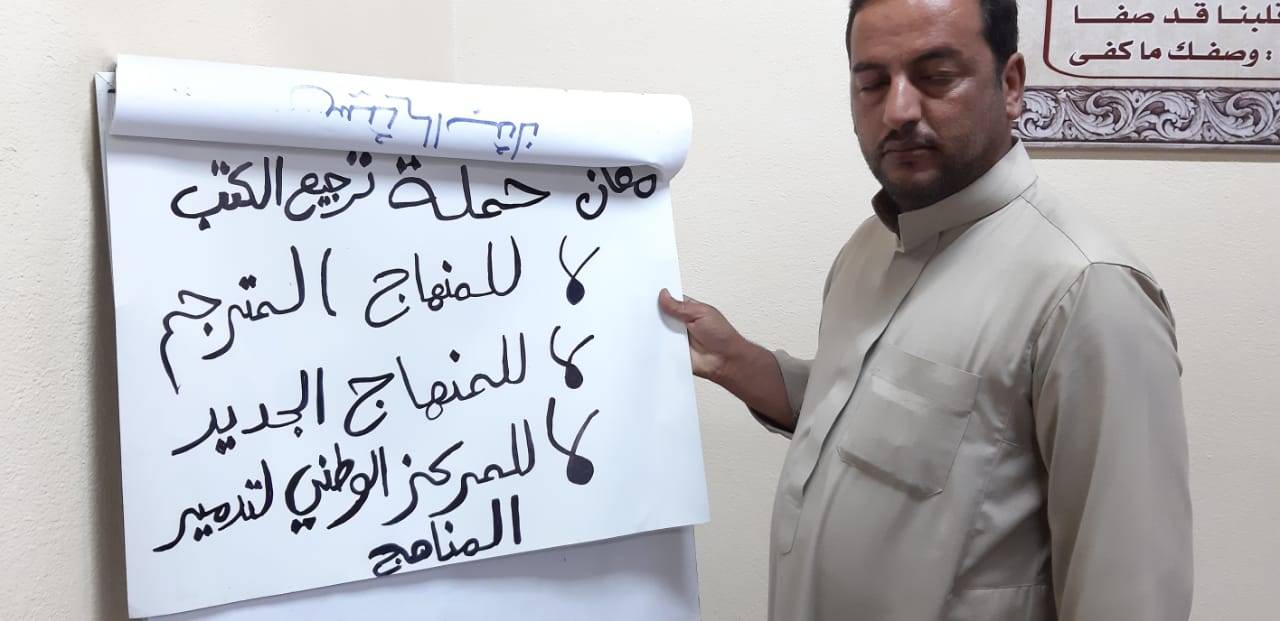 قلبنا قد صفا
: وصفك ما كفى
مكان حملة ترجيع الكتب
لا للمنهاج المترجم
لا للمنهاج الجديد
لا للمركز الوطني لتدمير
المناهج